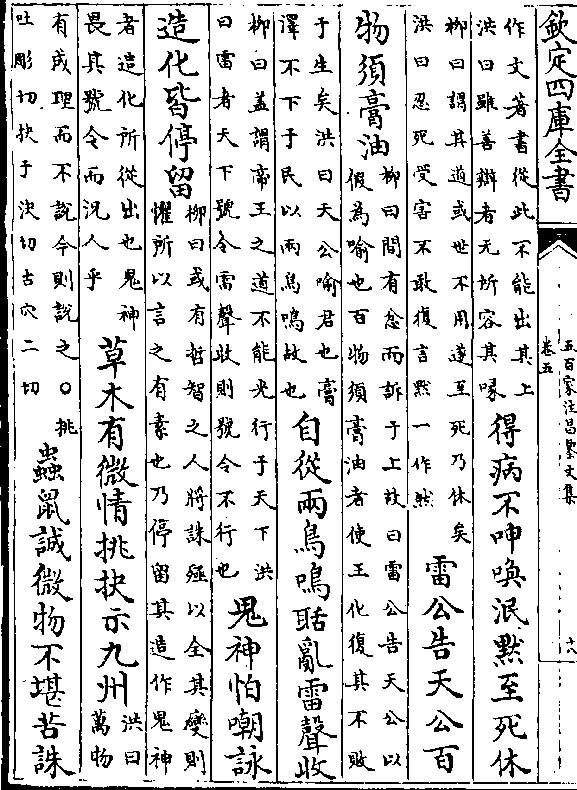 欽定四庫全書
五百家注昌黎文集
卷五
十八
作文著書從此不能出其上
洪曰雖善辯者无所容其喙
得病不呻喚泯默至死休
柳曰謂其道或世不用遂至死乃休矣
洪曰忍死受害不敢復言黙一作然
雷公告天公百
物須膏油
柳曰間有忿而訴于上故曰雷公告天公以
假為喻也百物須膏油者使王化復其不敗
于生矣洪曰天公喻君也膏
澤不下于民以兩鳥鳴故也
自從兩鳥鳴聒亂雷聲收
柳曰蓋謂帝王之道不能光行于天下洪
曰雷者天下號令雷聲收則號令不行也
鬼神怕嘲詠
造化皆停留
柳曰或有哲智之人將誅殛以全其變則
懼所以言之有素也乃停留其造作鬼神
者造化所從出也鬼神
畏其號令而況人乎
草木有微情挑抉示九州
洪曰
萬物
有成理而不說今則說之○挑
吐彫切抉于決切古穴二切
蟲鼠誠微物不堪苦誅